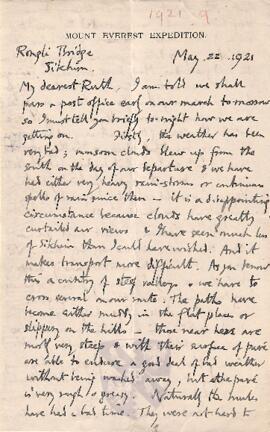 1921. 9
MOUNT EVEREST EXPEDITION.
Rongli Bridge
May 22 1921
Sikkim
My dearest Ruth, I am told we shall
pass a post office early on our march tomorrow
so I must tell you briefly to-night how we are
getting on. Firstly, the weather has been
very bad; monsoon clouds blew up from the
south on the day of our departure & we have
had either very heavy rain-storms or continuous
spells of rain since then – it is a disappointing
circumstance because clouds have greatly
curtailed our views & I have seen much less
of Sikkim than I could have wished. And it
makes transport more difficult. As you know
this is a country of steep valleys & we have to
cross several on our route. The paths have
become either muddy in the flat places or
slippery on the hills – those near here are
mostly very steep & with their surface of pavé
are able to endure a good deal of bad weather
without being washed away, but the pavé
is very rough & greasy. Naturally the mules
have had a bad time. They were not hard to